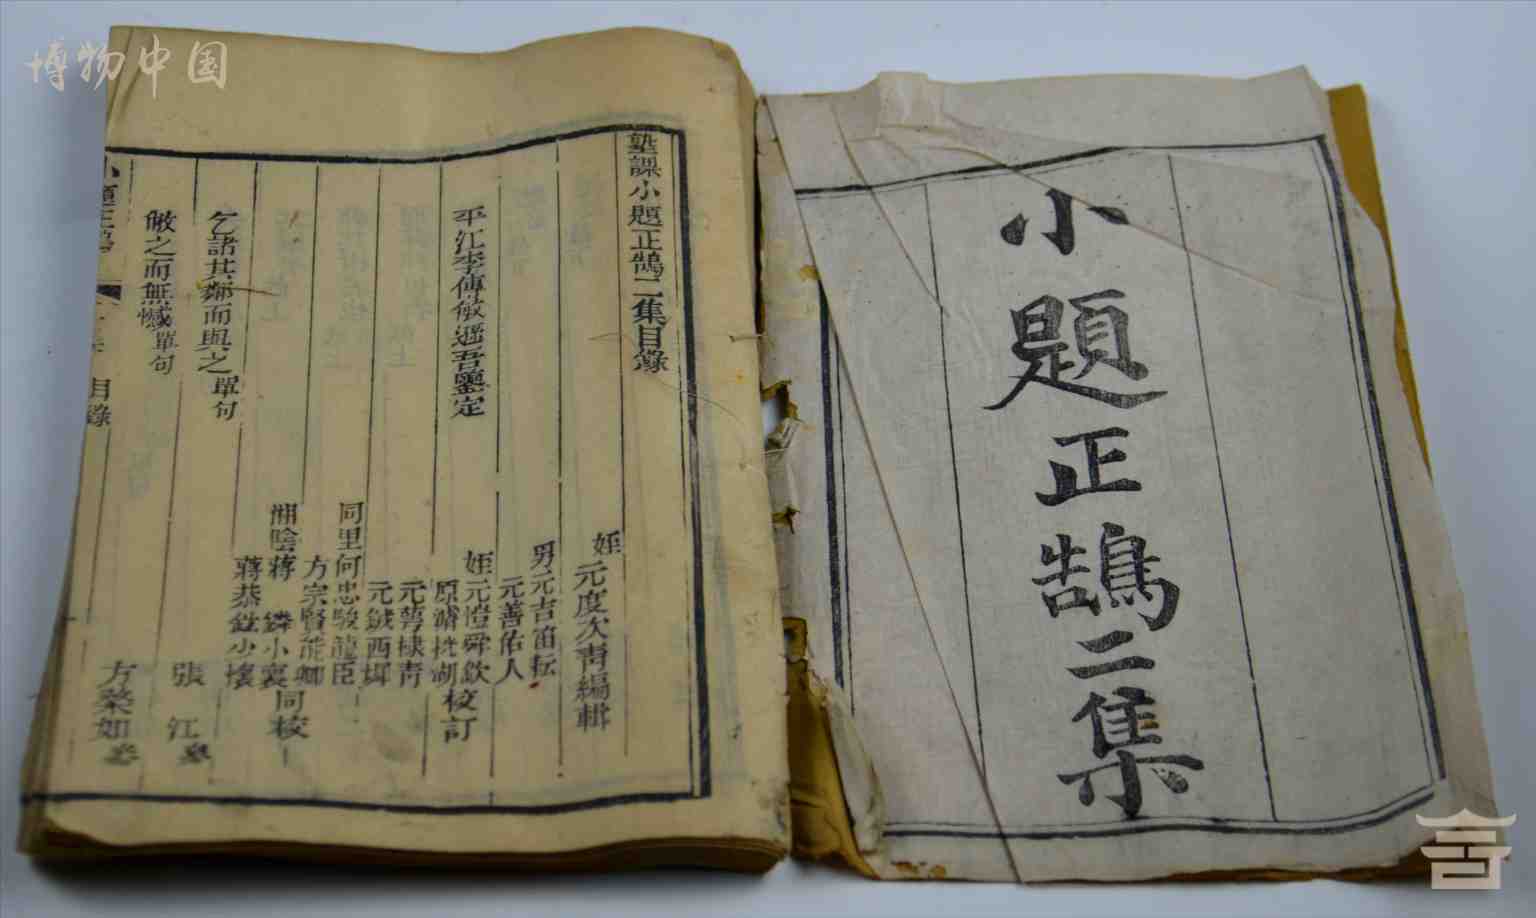 博物中国
小題正鵠二集
塾課小題正鵠二集目錄
姪元度次青編輯
男元吉笛耘
元善佑人
平江李傳敏遜吾鑒定
姪元愷舜欽
校訂
元棣青
元鉞西
同里何忠駿龍臣
方宗賢能卿
湘陰蔣鏻小襄
同校
蔣恭鎰少懷
乞諸其鄰而與之單句
張江
敝之而無憾單句
方楘如
目錄